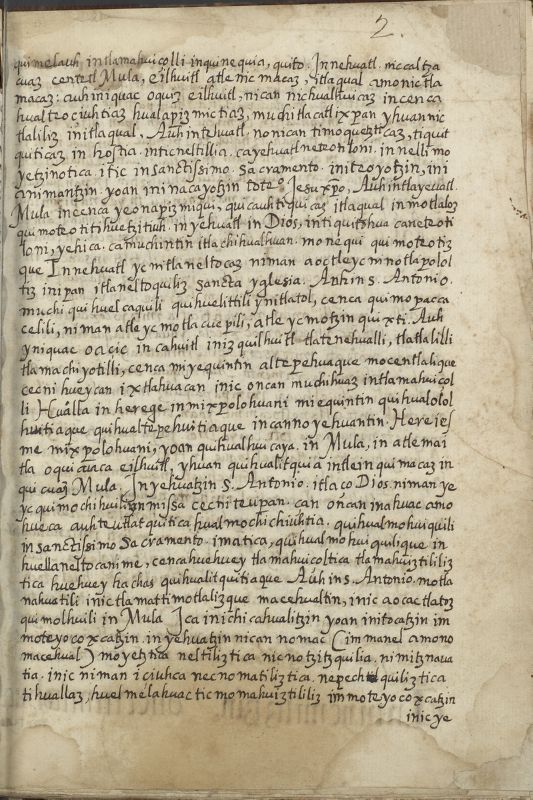 2.
qui melauh, in tlamahuicolli in quinequia, quito. Innehuatl. niccaltza
cuaz centetl Mula, eilhuitl atle nic macaz, itlaqual amo nictla
macaz: auh iniquac oquiz eilhuitl, nican nichualhuicaz in cenca
hualteociuhtiaz hualapizmictiaz, muchi tlacatl ixpan yhuan nic
tlaliliz initlaqual, Auh intehuatl, no nican timoquetztcaz, tiquit
quiticaz in hostia. inticneltillia. ca yehuatl neteotiloni. in nelli mo
yetzinotica. itic in sanctissimo. Sacramento. initeoyotzin, ini
animantzin. yoan ini nacayotzin toteo Jesu xpo, Auh intla yehuatl
Mula in cenca ye onapizmiqui, quicauhtiquicaz itlaqual in motlaloz
quimoteotitihuetzituh. in yehuatl in Dios, intiquitohua caneteoti
loni, yehica. ca muchintin itlachihualhuan. monequi quimoteotiz
que Innehuatl yc nitlaneltocaz niman aoctle yc mnotlapolol
tiz inipan itlaneltoquiliz Sancta yglesia. Auh in S. Antonio.
muchi quihuelcaquili quihuelittili ynitlatol, cenca quimopacca
celili, niman atle yc motlacuepili, atle yc motzinquixti. Auh
yniquac oacic in cahuitl iniz quilhuitl tlatenehualli, tlatlalilli
tlamachiyotilli, cenca miyequintin altepehuaque mocentlalique
cecni hueycan ixtlahuacan inic oncan muchihuaz intlamahuicol
li Hualla in herege inmixpolohuani miequintin quihualolol
huitiaque quihualtepehuitiaque in canno yehuantin. Herejes
me mixpolohuani, yoan quihualhuicaya. in Mula, in atle mai
tla oquicuaca eilhuitl, yhuan quihualitquiā intlein quimacaz in
quicuaz Mula. In yehuatzin S. Antonio. itlaco Dios. niman ye
yc quimochihuilia missa cecni teupan. can oncan inahuac amo
hueca auh teutlatquitica hualmochichiuhtia. quihualmohuiquili
in sanctissimo Sacramento. imatica, quihualmohuiquilique in
huellaneltocanime, cencahuehuey tlamahuicoltica tlamahuiztililiz
tica huehuey hachas quihualitquitiaque Auh in S. Antonio. motla
nahuatili inic tlamattimotlalizque macehualtin, inic aocac tlatoz
quimolhuili in Mula Ica inichicahualitzin yoan initocatzin im
moteyocoxcatzin. in yehuatzin nican nomac (immanel amono
macehual) moyetztica neltiliztica nicnotzitzquilia. nimitznaua
tia. inic niman iciuhca necnomatiliztica. nepechtequiliztica
tihuallaz, huel melahuac ticmomahuiztililiz immoteyocoxcatzin
inic ye